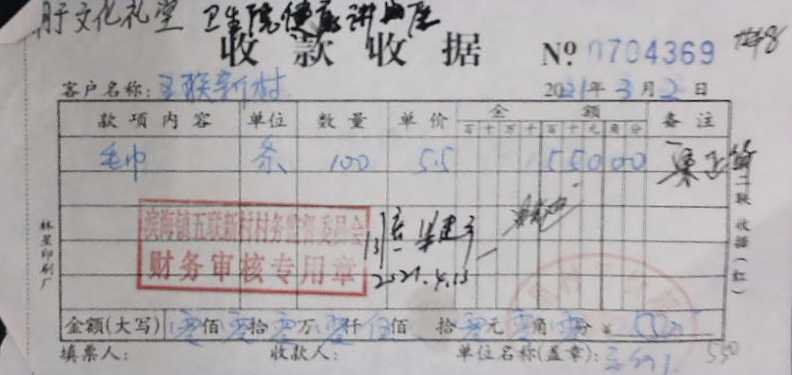 于文化礼堂 卫生院健康讲座
收款收据 Nº 0704369
客户名称: 五联新村 2021年3月2日
款项内容 单位 数量 单价 金额 备注
百 十 万 千 百 十 元 角 分
毛巾 条 100 5.5 55000
二联 收据(红)
林星印刷厂
滨海镇五联新村村务监督委员会
财务审核专用章
2021.4.13
金额(大写) 零佰零拾零万零仟伍佰 拾零元零角零分 ¥ 550
填票人: 收款人: 单位名称(盖章):
550